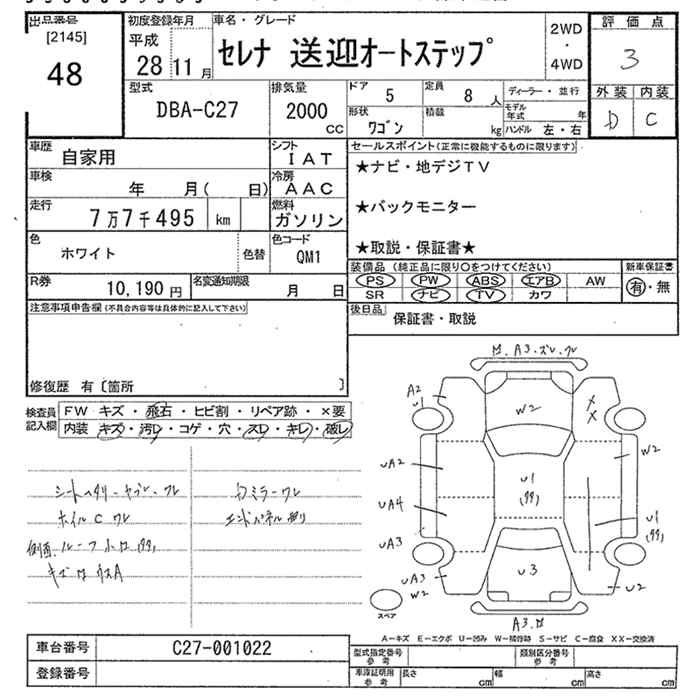 出品番号
[2145]
48
初度登録年月
平成
28 11月
車名・グレード
セレナ 送迎オートステップ
2WD
・
4WD
評価点
3
外装 内装
D C
型式
DBA-C27
排気量
2000
CC
ドア
5
定員
8 人
ディーラー・並行
形状
ワゴン
積載
kg
モデル年式 年
ハンドル 左・右
車歴
自家用
シフト
IAT
車検
年 月( 日)
冷房
AAC
走行
7万7千495 km
燃料
ガソリン
色
ホワイト
色替
色コード
QM1
R券
10,190円
名変通知期限
月 日
セールスポイント(正常に機能するものに限ります)
★ナビ・地デジTV
★バックモニター
★取説・保証書★
装備品(純正品に限り○をつけてください)
PS PW ABS エアB AW
SR ナビ TV カワ
新車保証書
有・無
後日品
保証書・取説
注意事項申告欄(不具合内容等は具体的に記入して下さい)
修復歴 有〔箇所 〕
検査員
記入欄
FW キズ・飛石・ヒビ割・リペア跡・×要
内装 キズ・汚レ・コゲ・穴・スレ・キレ・破レ
ホイルC ワレ
A3・ズレ・ワレ
A2
U1
W2
X
X
UA2
W2
U1
UA4
U1
UA3
UA3
W2
U3
U2
A3
スペア
A―キズ E―エクボ U―凹み W―補修跡 S―サビ C―腐食 XX―交換済
車台番号
C27-001022
登録番号
型式指定番号
参考
類別区分番号
参考
車庫証明用
参考
長さ cm
幅 cm
高さ cm